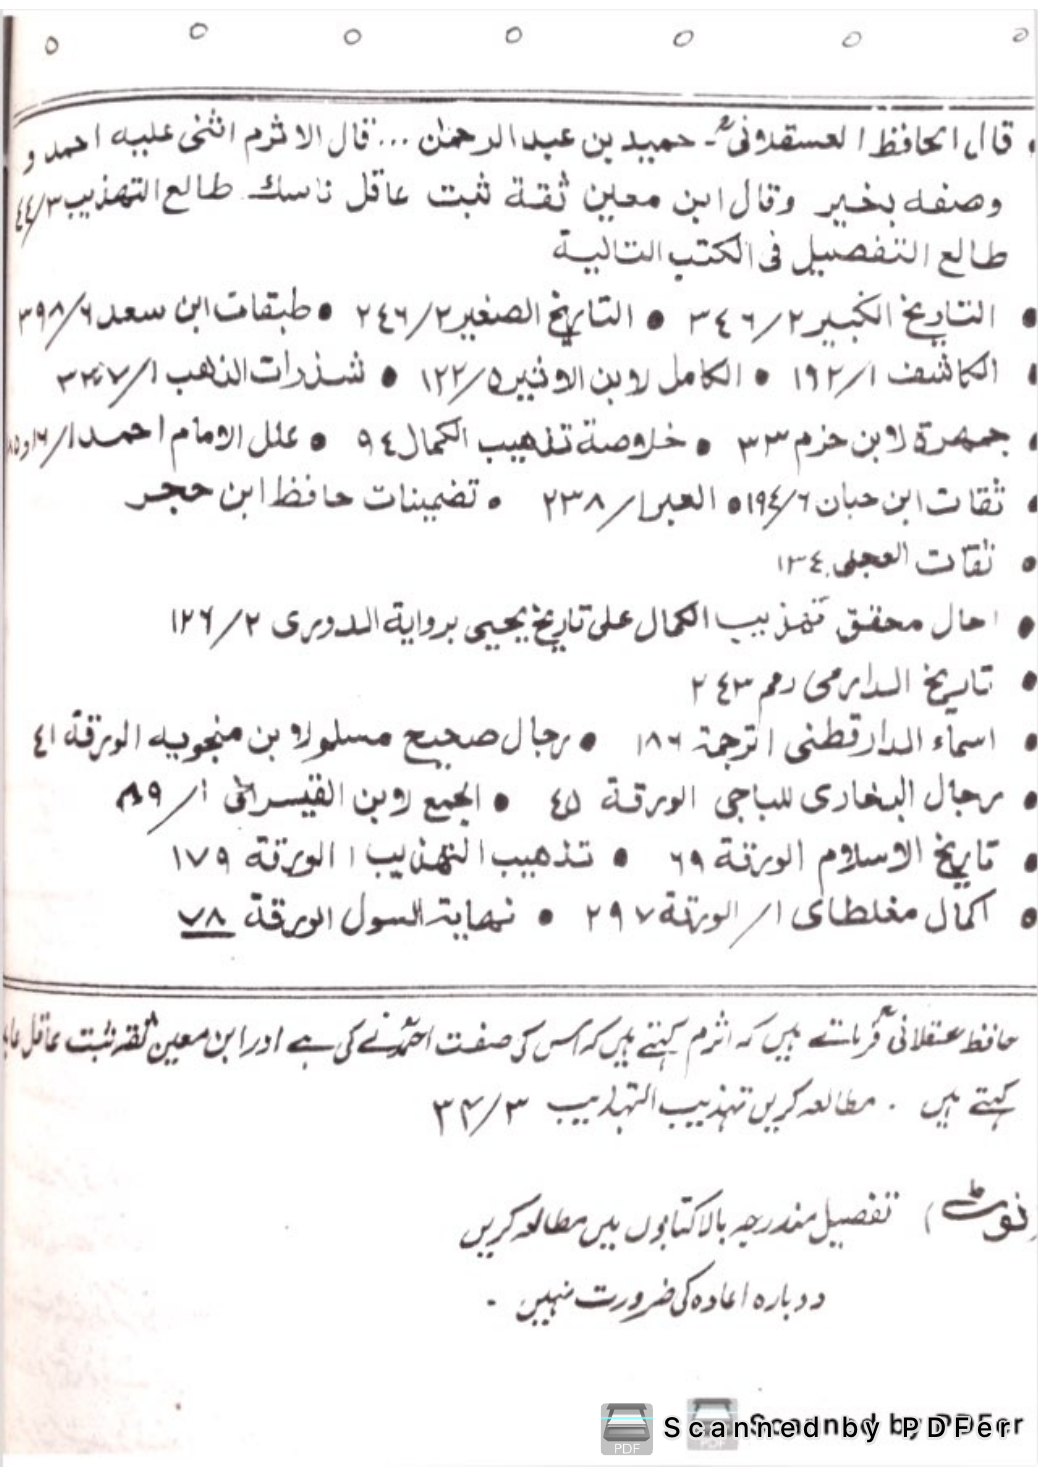 قال الحافظ العسقلانیؒ ـ حمید بن عبد الرحمٰن ... قال الاثرم اثنی علیه احمد و
وصفه بخیر وقال ابن معین ثقة ثبت عاقل ناسك طالع التهذیب ٣/٤٤
طالع التفصیل فی الکتب التالیة
• التاریخ الکبیر ٢/٣٤٦ • التاریخ الصغیر ٢/٢٤٦ • طبقات ابن سعد ٦/٣٩٨
• الکاشف ١/١٩٢ • الکامل لابن الاثیر ٥/١٢٢ • شذرات الذهب ١/
• جمهرة لابن حزم ٣٣ • خلاصة تذهیب الکمال ٩٤ • علل الامام احمد ١/١٦ و
• ثقات ابن حبان ٦/١٩٤ • العبر ١/٢٣٨ • تضمینات حافظ ابن حجر
• ثقات العجلی ١٣٤
• احال محقق تهذیب الکمال علی تاریخ یحیی بروایة الدوری ٢/١٢٦
• تاریخ الدارمی رقم ٢٤٣
• اسماء الدارقطنی الترجمة ١٨٦ • رجال صحیح مسلم لابن منجویه الورقة ٤١
• رجال البخاری للباجی الورقة ٤٥ • الجمع لابن القیسرانی ١/
• تاریخ الاسلام الورقة ٦٩ • تذهیب التهذیب ١ الورقة ١٧٩
• اکمال مغلطای ١/ الورقة ٢٩٧ • نهایة السول الورقة ٧٨
حافظ عسقلانیؒ فرماتے ہیں کہ اثرم کہتے ہیں کہ اس کی صفت احمدؒ نے کی ہے اور ابن معینؒ ثقہ ثبت عاقل
کہتے ہیں . مطالعہ کریں تہذیب التہذیب ۳/۳۴
(نوٹ) تفصیل مندرجہ بالا کتابوں میں مطالعہ کریں
دوبارہ اعادہ کی ضرورت نہیں -
Scanned by PDFer
Scanned by PDFer
PDF
PDF